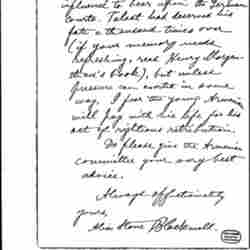 influence to bear upon the German
courts. Talaat had deserved his
fate a thousand times over
(if your memory needs
refreshing, read Henry Morgen-
thau's book), but unless
pressure can exerte in some
way, I fear the young Armenian
will pay with his life for his
act of righteous retribution.
Do please give the Armenian
committee your very best
advice.
Always affectionately
yours,
Alice Stone Blackwell.